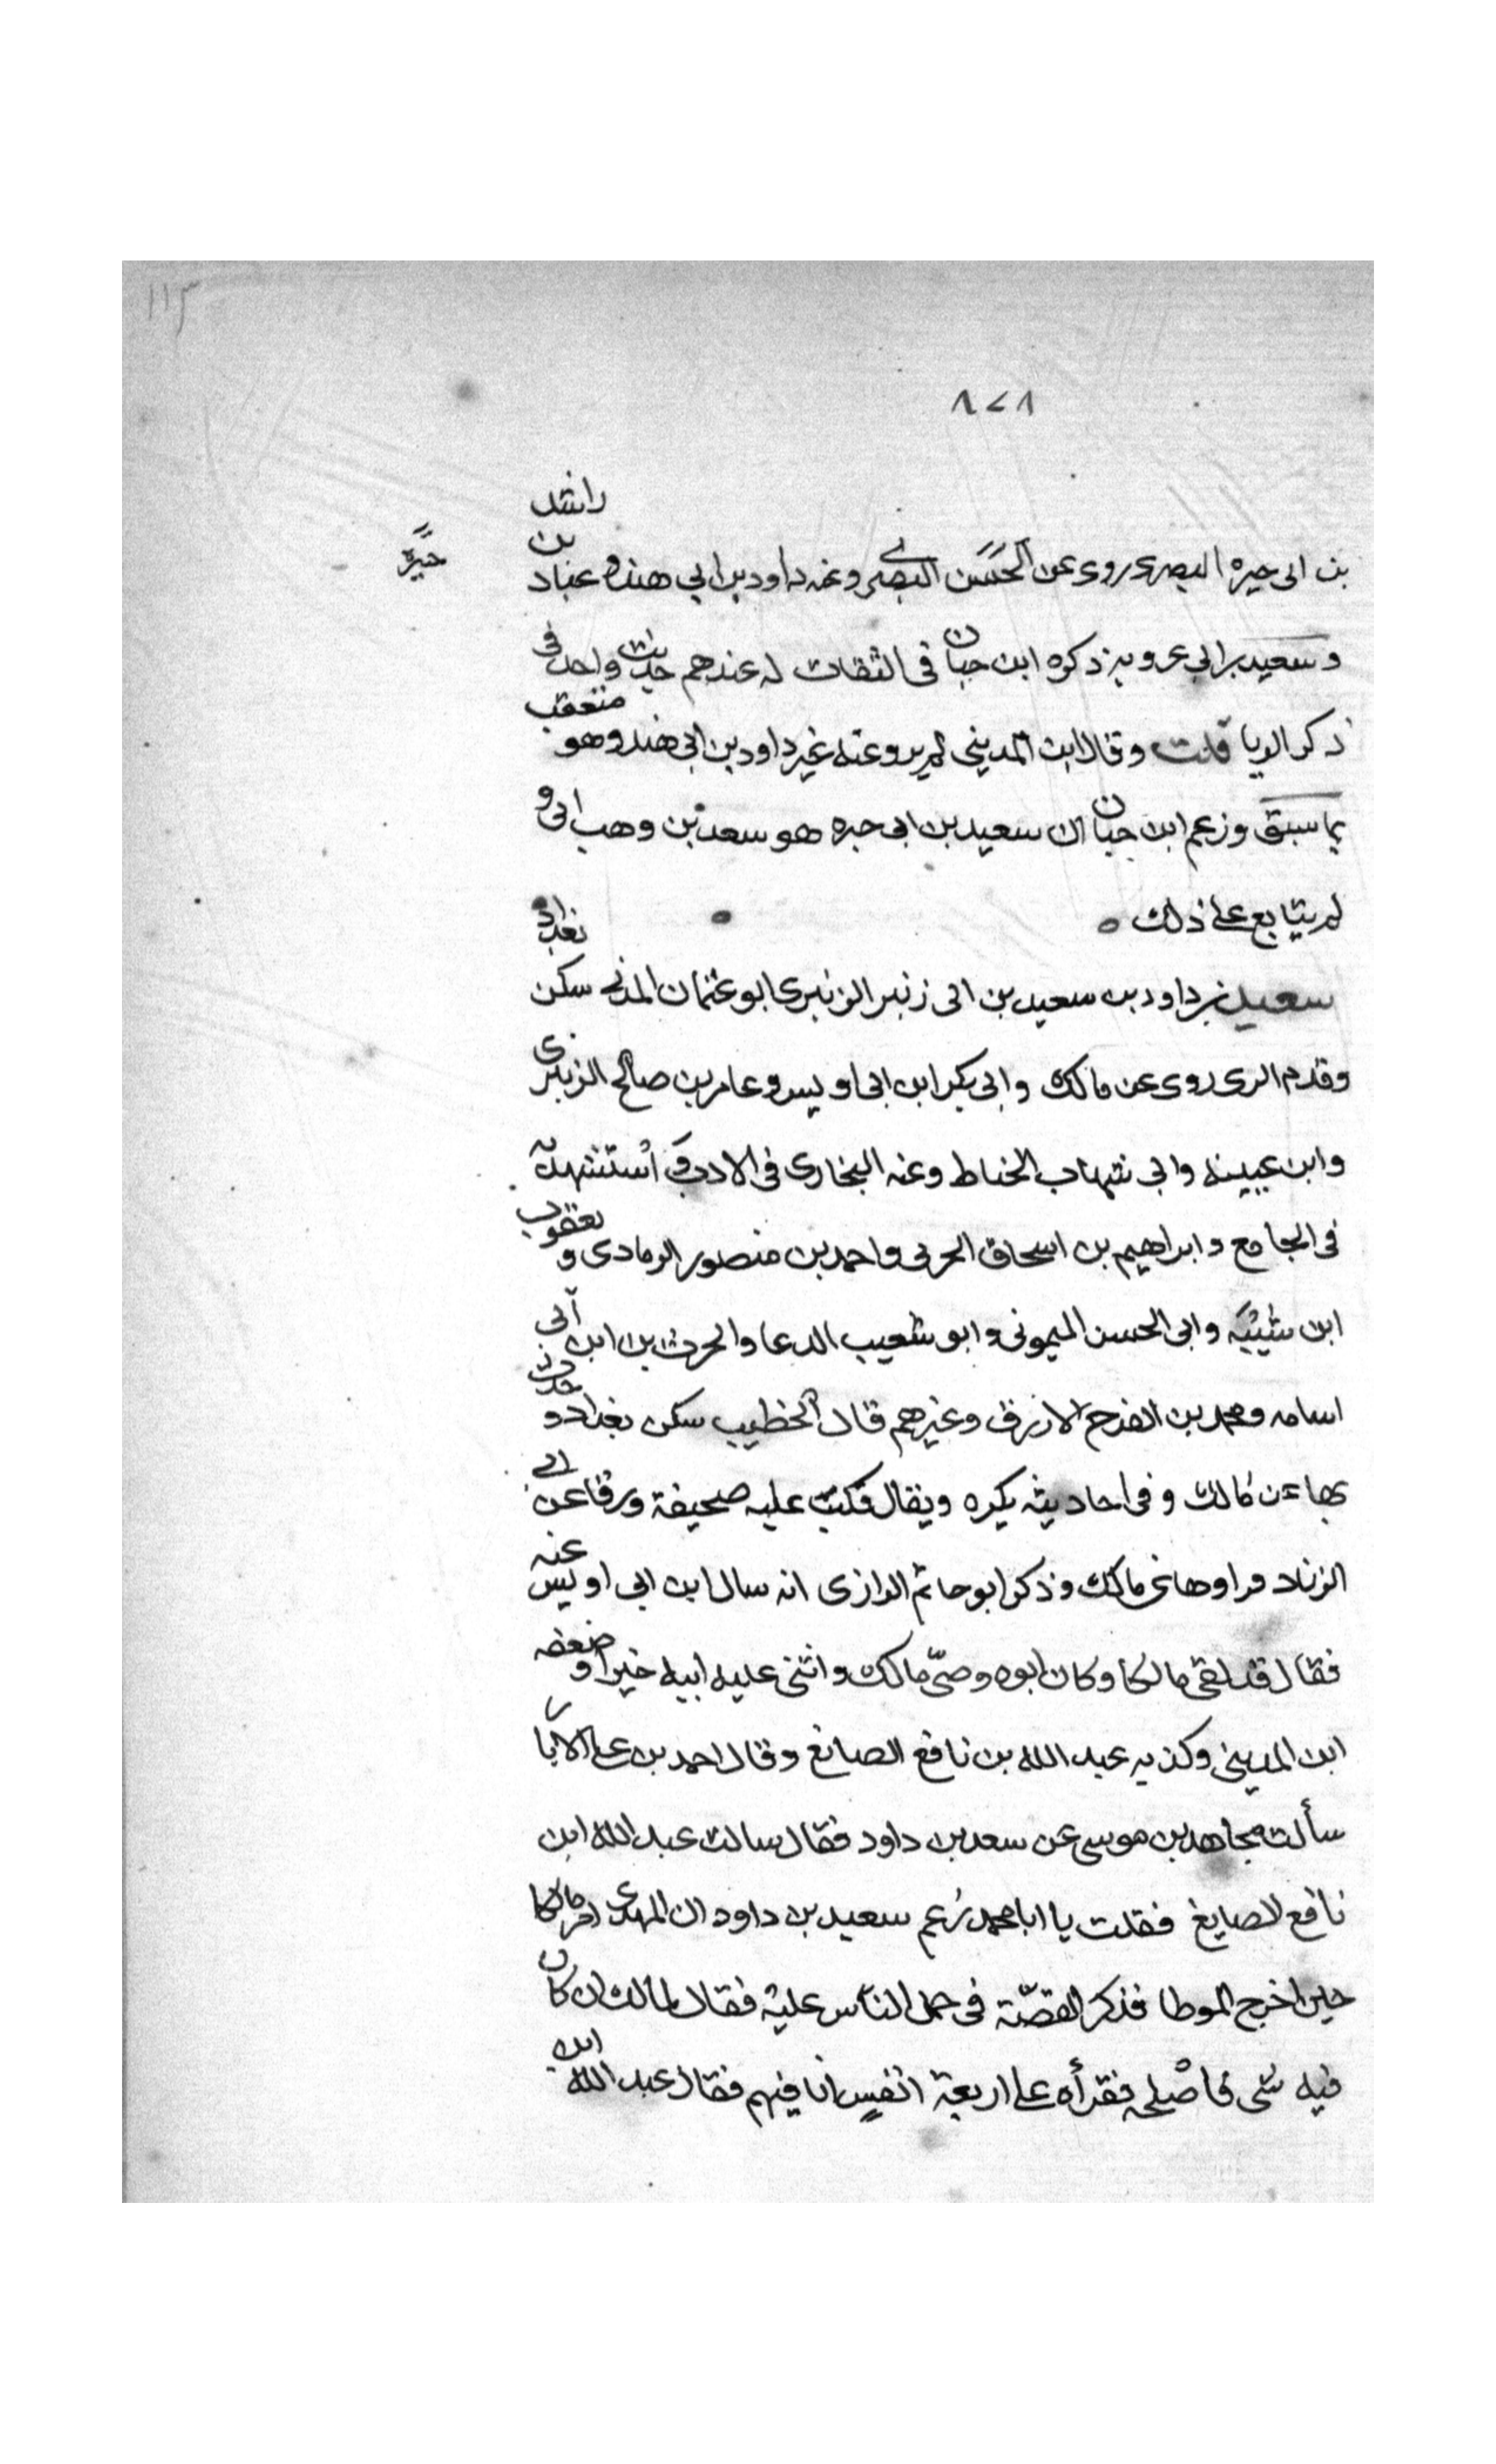 ١١٣
٨٧٨
بن ابى خيره البصرى روى عن الحسن البصرى وعنه داود بن ابي هند وعباد بن راشد
خيرة
وسعيد بن ابى عروبه ذكره ابن حبان فى الثقات له عندهم حديث واحد فى
ذكر الربا قلت وقال ابن المديني لم يرو عنه غير داود بن ابى هند وهو متعقب
بما سبق وزعم ابن حبان ان سعيد بن ابى خيره هو سعد بن وهب ابى و
لم يتابع على ذلك
سعيد بن داود بن سعيد بن ابى زنبر الزنبرى ابو عثمان المدنى سكن بغداد
وقدم الرى روى عن مالك وابى بكر ابن ابى اويس وعامر بن صالح الزبيرى
وابن عيينه وابى شهاب الخناط وعنه البخارى فى الادب و استشهد به
فى الجامع وابراهيم بن اسحاق الحربى واحمد بن منصور الرمادى و يعقوب
ابن شيبه وابى الحسن الميمونى وابو شعيب الدعا والحرث بن ابن أبى
اسامه ومحمد بن الفرج الازرق وغيرهم قال الخطيب سكن بغداد و حدث
بها عن مالك وفى احاديثه نكره ويقال قلبت عليه صحيفة ورقا عن ابى
الزناد فراوها عن مالك وذكر ابو حاتم الرازى انه سال ابن ابى اويس عنه
فقال قد لقى مالكا وكان ابوه وصىّ مالك واثنى عليه ابيه خيرا و ضعفه
ابن المدينى وكذبه عبد الله بن نافع الصائغ وقال احمد بن على الابار
سألت مجاهد بن موسى عن سعد بن داود فقال سالت عبد الله ابن
نافع الصايغ فقلت يا ابا محمد زعم سعيد بن داود ان المهدى امر مالكا
حين اخرج الموطا فذكر القصّة فى حمل الناس عليه فقال لمالك ان كان
فيه شى فاصلحه فقرأه على اربعة انفس انا فيهم فقال عبد الله ابن